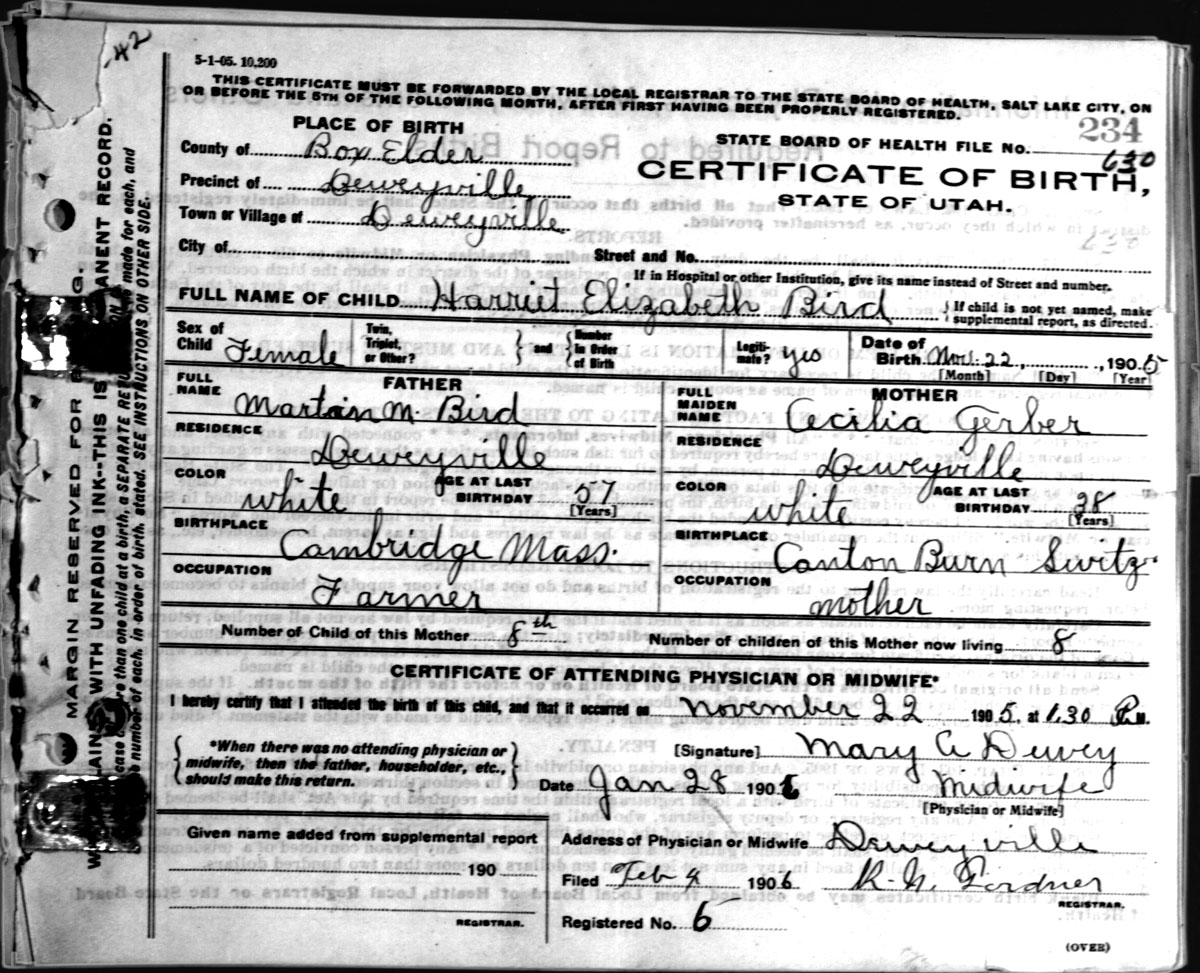 42
5-1-05. 10,200
THIS CERTIFICATE MUST BE FORWARDED BY THE LOCAL REGISTRAR TO THE STATE BOARD OF HEALTH, SALT LAKE CITY, ON
OR BEFORE THE 5TH OF THE FOLLOWING MONTH, AFTER FIRST HAVING BEEN PROPERLY REGISTERED.
234
PLACE OF BIRTH
STATE BOARD OF HEALTH FILE NO. 630
County of Box Elder
CERTIFICATE OF BIRTH,
Precinct of Deweyville
STATE OF UTAH.
Town or Village of Deweyville
630
City of Street and No.
If in Hospital or other Institution, give its name instead of Street and number.
FULL NAME OF CHILD Harriet Elizabeth Bird { If child is not yet named, make
supplemental report, as directed.
Sex of Child Female Twin, Triplet, or Other? } and { Number in Order of Birth Legiti-mate? yes Date of Birth Nov. 22, 1905
[Month] [Day] [Year]
FATHER MOTHER
FULL NAME Martain M. Bird FULL MAIDEN NAME Cecilia Gerber
RESIDENCE Deweyville RESIDENCE Deweyville
COLOR white AGE AT LAST BIRTHDAY 57 [Years] COLOR white AGE AT LAST BIRTHDAY 38 [Years]
BIRTHPLACE Cambridge Mass. BIRTHPLACE Canton Burn Switz.
OCCUPATION Farmer OCCUPATION mother
Number of Child of this Mother 8th Number of children of this Mother now living 8
CERTIFICATE OF ATTENDING PHYSICIAN OR MIDWIFE*
I hereby certify that I attended the birth of this child, and that it occurred on November 22 1905. at 1.30 P. M.
{ *When there was no attending physician or
midwife, then the father, householder, etc.,
should make this return. }
[Signature] Mary A Dewey
Date Jan 28 1906 Midwife
[Physician or Midwife]
Given name added from supplemental report
190
REGISTRAR.
Address of Physician or Midwife Deweyville
Filed Feb 4 1906.
REGISTRAR.
Registered No. 6
(OVER)
MARGIN RESERVED FOR
WITH UNFADING INK--THIS IS
ANENT RECORD.
than one child at a birth, a SEPARATE RETU made for each, and
number of each, in order of birth, stated. SEE INSTRUCTIONS ON OTHER SIDE.